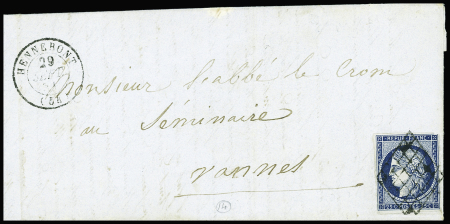 HENNEBONT
29
Monsieur l'abbé le Crom
au Séminaire
Vannes
REPUB. FRANC.
25 C POSTES 25 C